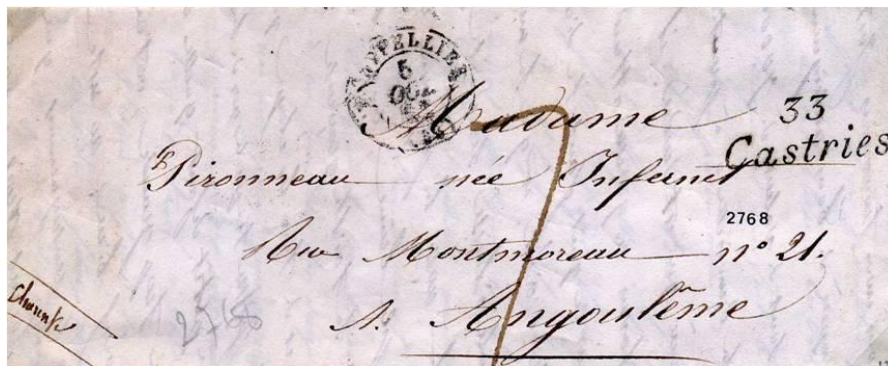 MONTPELLIER
5
OCT.
Madame
33
Castries
Pironneau née Infernet
2768
Rue Montmoreau n° 21.
A. Angoulême
Charente
2768
7